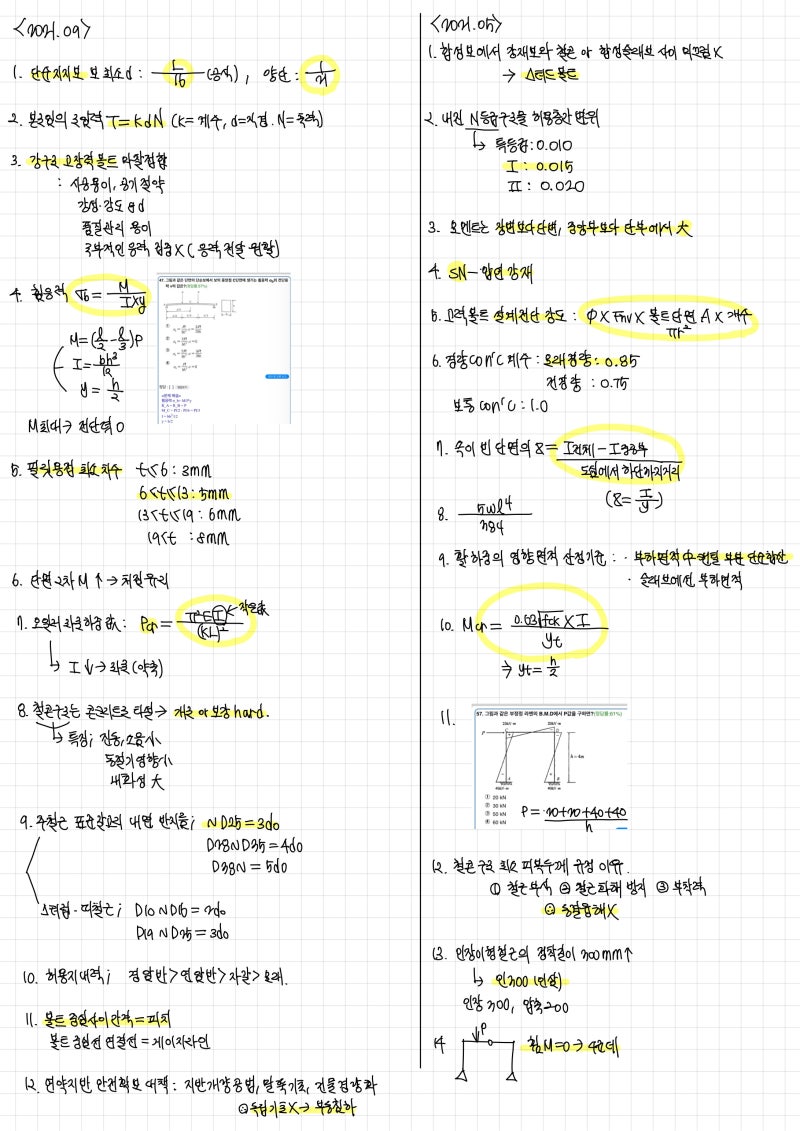 <2021.09>
1. 단순지지보 보 최소d : l/16 (공식), 양단 : l/21
2. 본조임의 조임력 T=kdN (k= 계수, d=직경. N=축력)
3. 강구조 고장력볼트 마찰접합
: 시공용이, 공기절약
강성·강도 good
품질관리 용이
국부적인 응력 집중X (응력전달 원활)
4. 휨응력 σb = M/I×y
47. 그림과 같은 단면의 단순보에서
M=(l/2-l/3)P
I=bh³/12
y=h/2
M최대→ 전단력 0
5. 필릿용접 최소치수 t≤6 : 3mm
6<t≤13 : 5mm
13<t≤19 : 6mm
19<t : 8mm
6. 단면2차M ↑ → 처짐유리
7. 오일러 좌굴하중 값 : Pcr = π²EI/(KL)² ← 작은값
↳ I↓ → 좌굴(약축)
8. 철골구조는 콘크리트로 타설 → 개조 and 보강 hard.
↳ 특징; 진동, 소음 小
동절기 영향 小
내화성 大
9. 주철근 표준갈고리 내면 반지름; ~D25=3do
D28~D35=4do
D38~=5do
스터럽·띠철근; D10~D16=2do
D19~D25=3do
10. 허용지내력; 경암반>연암반>자갈>모래.
11. 볼트 중심사이 간격=피치
볼트 중심선 연결선=게이지라인
12. 연약지반 안전확보 대책 : 지반개량공법, 말뚝기초, 건물경량화
독립기초X → 부동침하
<2021.05>
1. 합성보에서 강재보와 철콘 or 합성슬래브 사이 미끄럼X
→ 스터드볼트
2. 내진 N등급구조물 허용층간변위
↳ 특등급 : 0.010
I : 0.015
II : 0.020
3. 모멘트는 장변보다 단변, 중앙부보다 단부에서 大
4. SN-압연강재
5. 고력볼트 설계전단강도 : Φ×Fnv×볼트단면A×개수
πr²
6. 경량con'c계수 : 모래경량 : 0.85
전경량 : 0.75
보통con'c : 1.0
7. 속이 빈 단면의 Z = I전체-I중공부/도심에서 하단까지거리
(Z=I/y)
8. 5wl⁴/384
9. 활하중의 영향면적 산정기준 : · 부하면적中 캔틸 부분 단순합산
· 슬래브에선 부하면적
10. Mcr = 0.63√fck×I/yt
⇒ yt=h/2
11.
57. 그림과 같은 부정정 라멘의 B.M.D에서 P값을 구하면?(정답률:61%)
20kN·m 20kN·m
P
h=4m
40kN·m 40kN·m
① 20 kN
② 30 kN
③ 50 kN
④ 60 kN
P = 20+20+40+40/h
12. 철콘구조 최소 피복두께 규정 이유.
① 철근부식 ② 철근화해 방지 ③ 부착력
동결융해X
13. 인장이형철근의 정착길이 300mm↑
↳ 인300 (인삼)
인장 300, 압축 200
14 P 휨M=0 → 4번데